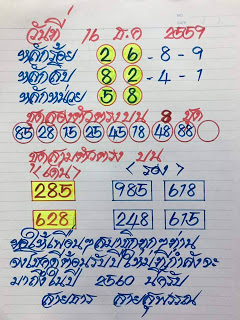 วันที่ 16 ธ.ค 2559
หลักร้อย 2 6 - 8 - 9
หลักสิบ 8 2 - 4 - 1
หลักหน่วย 5 8
ชุดสองตัวตรงบน 8 ชุด
85 28 15 25 45 18 48 88
ชุดสามตัวตรง บน
<เด่น> <รอง>
285 985 618
628 248 615
ขอให้เพื่อนๆสมาชิกทุกๆท่าน
จงโชคดีต้อนรับปีใหม่ที่กำลังจะ
มาถึงในปี 2560 นี้ครับ
สายธาร สายสุพรรณ